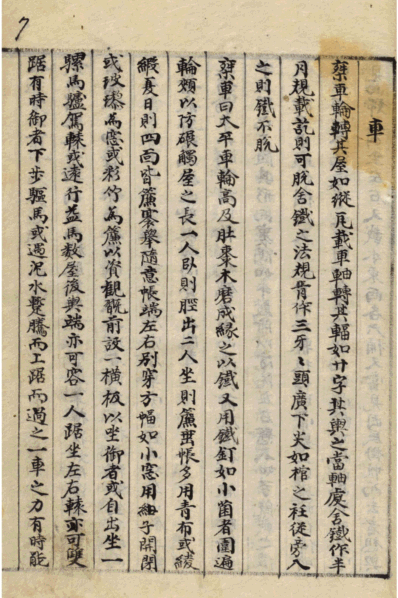 7
車
乘車輪轉其屋如縱瓦載車軸轉其輻如廿字其輿之當軸處含鐵作半
月規載訖則可脫含鐵之法規脊作三牙〻頭廣下尖如棺之衽從旁入
之則鐵不脫
乘車曰太平車輪高及肚棗木磨成緣之以鐵又用鐵釘如小菌者圍遍
輪頰以防碾觸屋之長一人臥則脛出二人坐則簾垂帳多用青布或綾
緞夏日則四面皆簾褰擧隨意帳端左右別穿方幅如小窓用細子開閉
或玻瓈爲窓或彩竹爲簾以資觀翫前設一橫板以坐御者或自出坐一
騾馬驢駕轅或遠行益馬數屋後輿端亦可容一人踞坐左右轅亦可雙
踞有時御者下步驅馬或遇泥水蹩騰而上踞而過之一車之力有時能